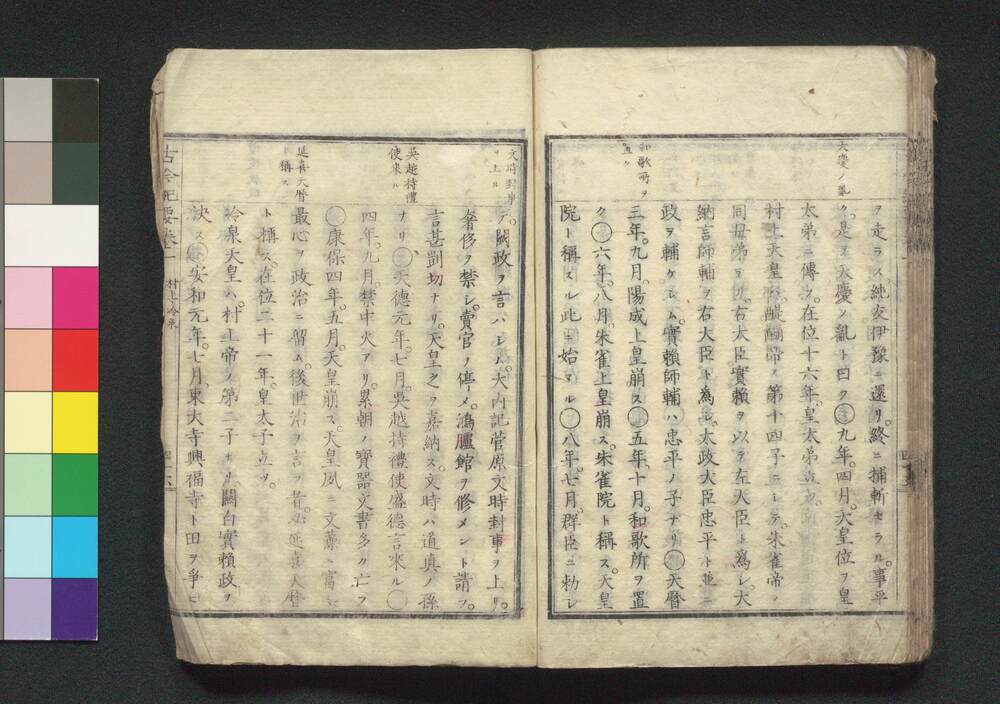 天慶ノ亂
ヲ走ラス。純友伊豫ニ還リ。終ニ捕斬セラル。事平
ク。是ヲ天慶ノ亂ト曰ク 九年。四月。天皇位ヲ皇
太弟ニ傳フ。在位十六年。皇太弟立ツ。
村上天皇ハ。醍醐帝ノ第十四子ニシテ。朱雀帝ノ
同母弟ナリ。右大臣實賴ヲ以テ左大臣ト為シ。大
納言師輔ヲ右大臣ト為シ。太政大臣忠平ト並ニ
政ヲ輔ケシム。實賴師輔ハ忠平ノ子ナリ 天曆
和歌所ヲ置ク
三年。九月。陽成上皇崩ス 五年。十月。和歌所ヲ置
ク 六年。八月。朱雀上皇崩ス。朱雀院ト稱ス。天皇
院ト稱スル此ニ始マル 八年。七月。群臣ニ勅シ
文時封事ヲ上ル
テ。闕政ヲ言ハシム。大内記菅原文時封事ヲ上リ。
奢侈ヲ禁シ。賣官ヲ停メ。鴻臚館ヲ修メント請フ。
言甚剴切ナリ。天皇之ヲ嘉納ス。文時ハ道真ノ孫
吳越持禮使來ル
ナリ 天德元年。七月。吳越持禮使盛德言來ル
四年。九月。禁中火アリ。累朝ノ寶器文書多ク亡フ
康保四年。五月。天皇崩ス。天皇夙ニ文藻ニ富ミ
延喜天曆ト稱ス
最心ヲ政治ニ留ム。後世治ヲ言フ者。必延喜天曆
ト稱ス。在位二十一年。皇太子立ツ。
冷泉天皇ハ。村上帝ノ第二子ナリ。關白實賴政ヲ
決ス 安和元年。七月。東大寺興福寺ト田ヲ争ヒ
古今紀要卷一 村上 冷泉